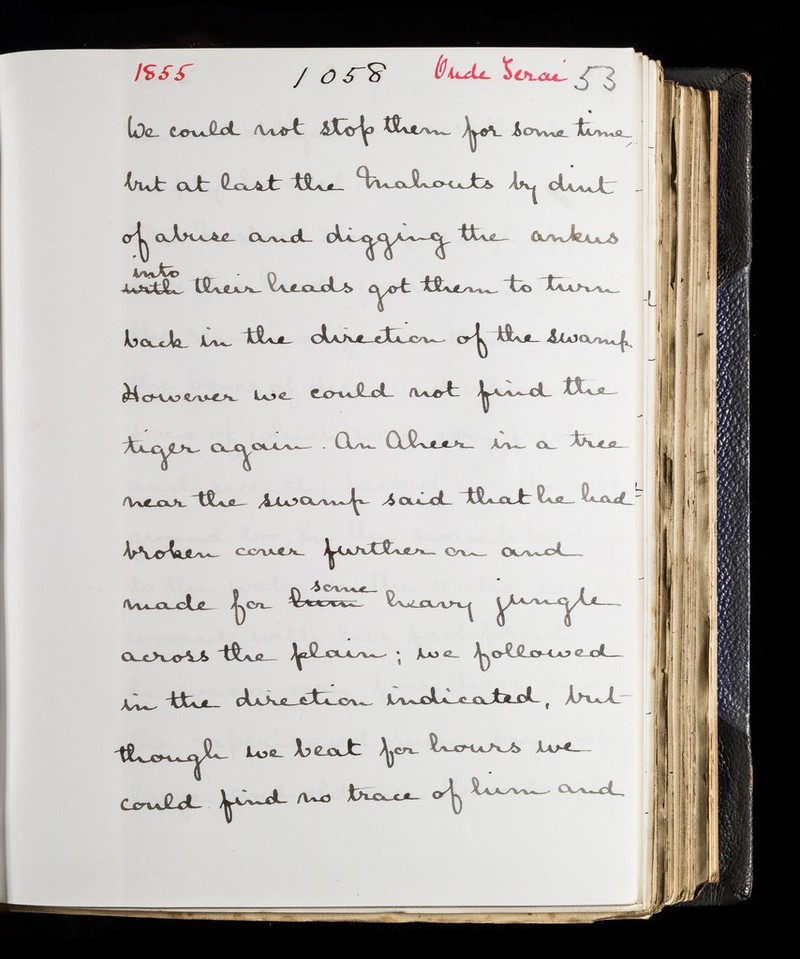 1855 1058 Oude Terai 53
We could not stop them for some time,
but at last the Mahouts by dint
of abuse and digging the ankus
into
with their heads got them to turn
back in the direction of the swamp.
However we could not find the
tiger again. An Aheer in a tree
near the swamp said that he had
broken cover further on and
some
made for him heavy jungle
across the plain; we followed
in the direction indicated, but
though we beat for hours we
could find no trace of him and